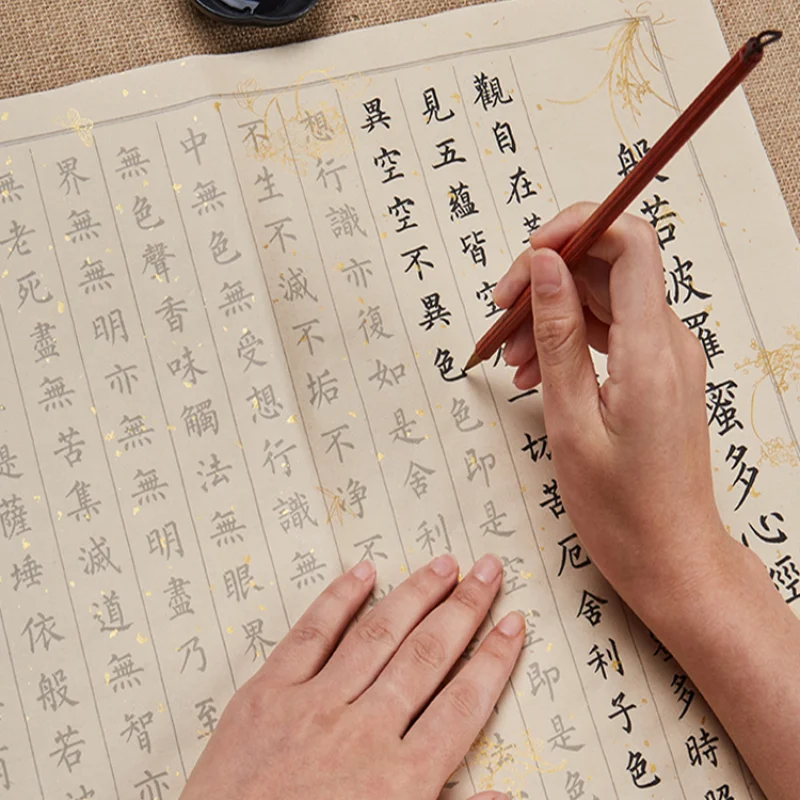 般若波羅蜜多心經
觀自在菩多時照
見五蘊皆空一切苦厄舍利子色
異空空不異色色即是空空即是色
想行識亦復如是舍利
不生不滅不垢不净不
中無色無受想行識無
無色聲香味觸法無眼界
界無無明亦無無明盡乃至
無老死盡無苦集滅道無智亦
是薩埵依般若波